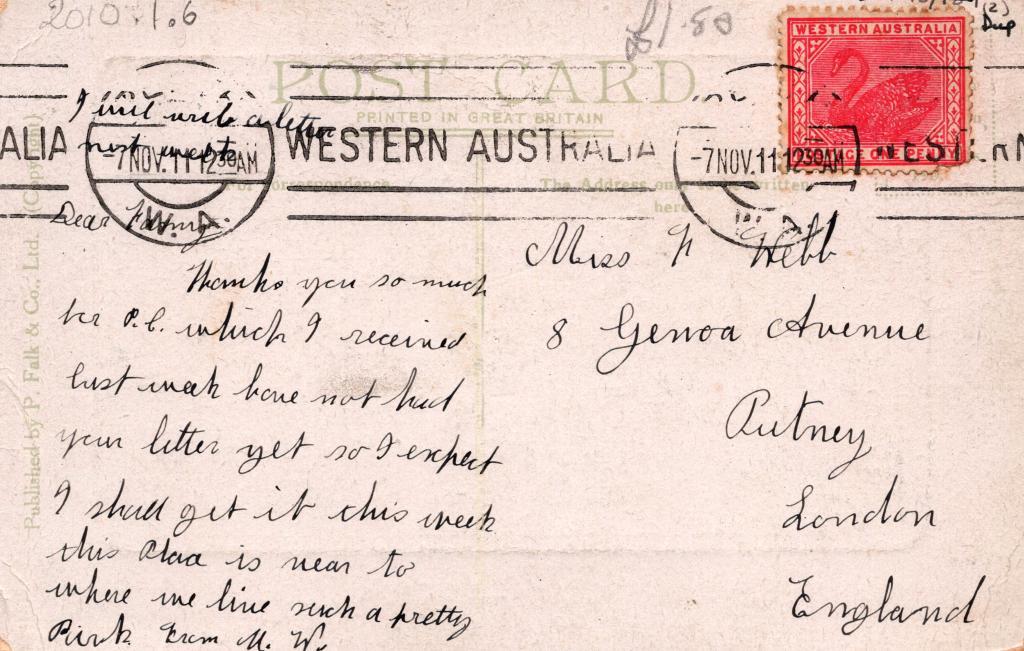 2010.1.6
£1.50
(2)
Dup
WESTERN AUSTRALIA
POST CARD
PRINTED IN GREAT BRITAIN
ALIA
WESTERN AUSTRALIA
WESTERN
-7NOV.11 1230AM
W.A.
-7NOV.11 1230AM
W.A.
For Correspondence
The Address only to be written
here
ONE PENNY
Published by P. Falk & Co., Ltd. (Copyright)
I will write a letter
next week
Dear Fanny
Thanks you so much
for P.C. which I received
last week have not had
your letter yet so I expect
I shall get it this week
this Place is near to
where we live such a pretty
Park From M. W.
Miss F Webb
8 Genoa Avenue
Putney
London
England